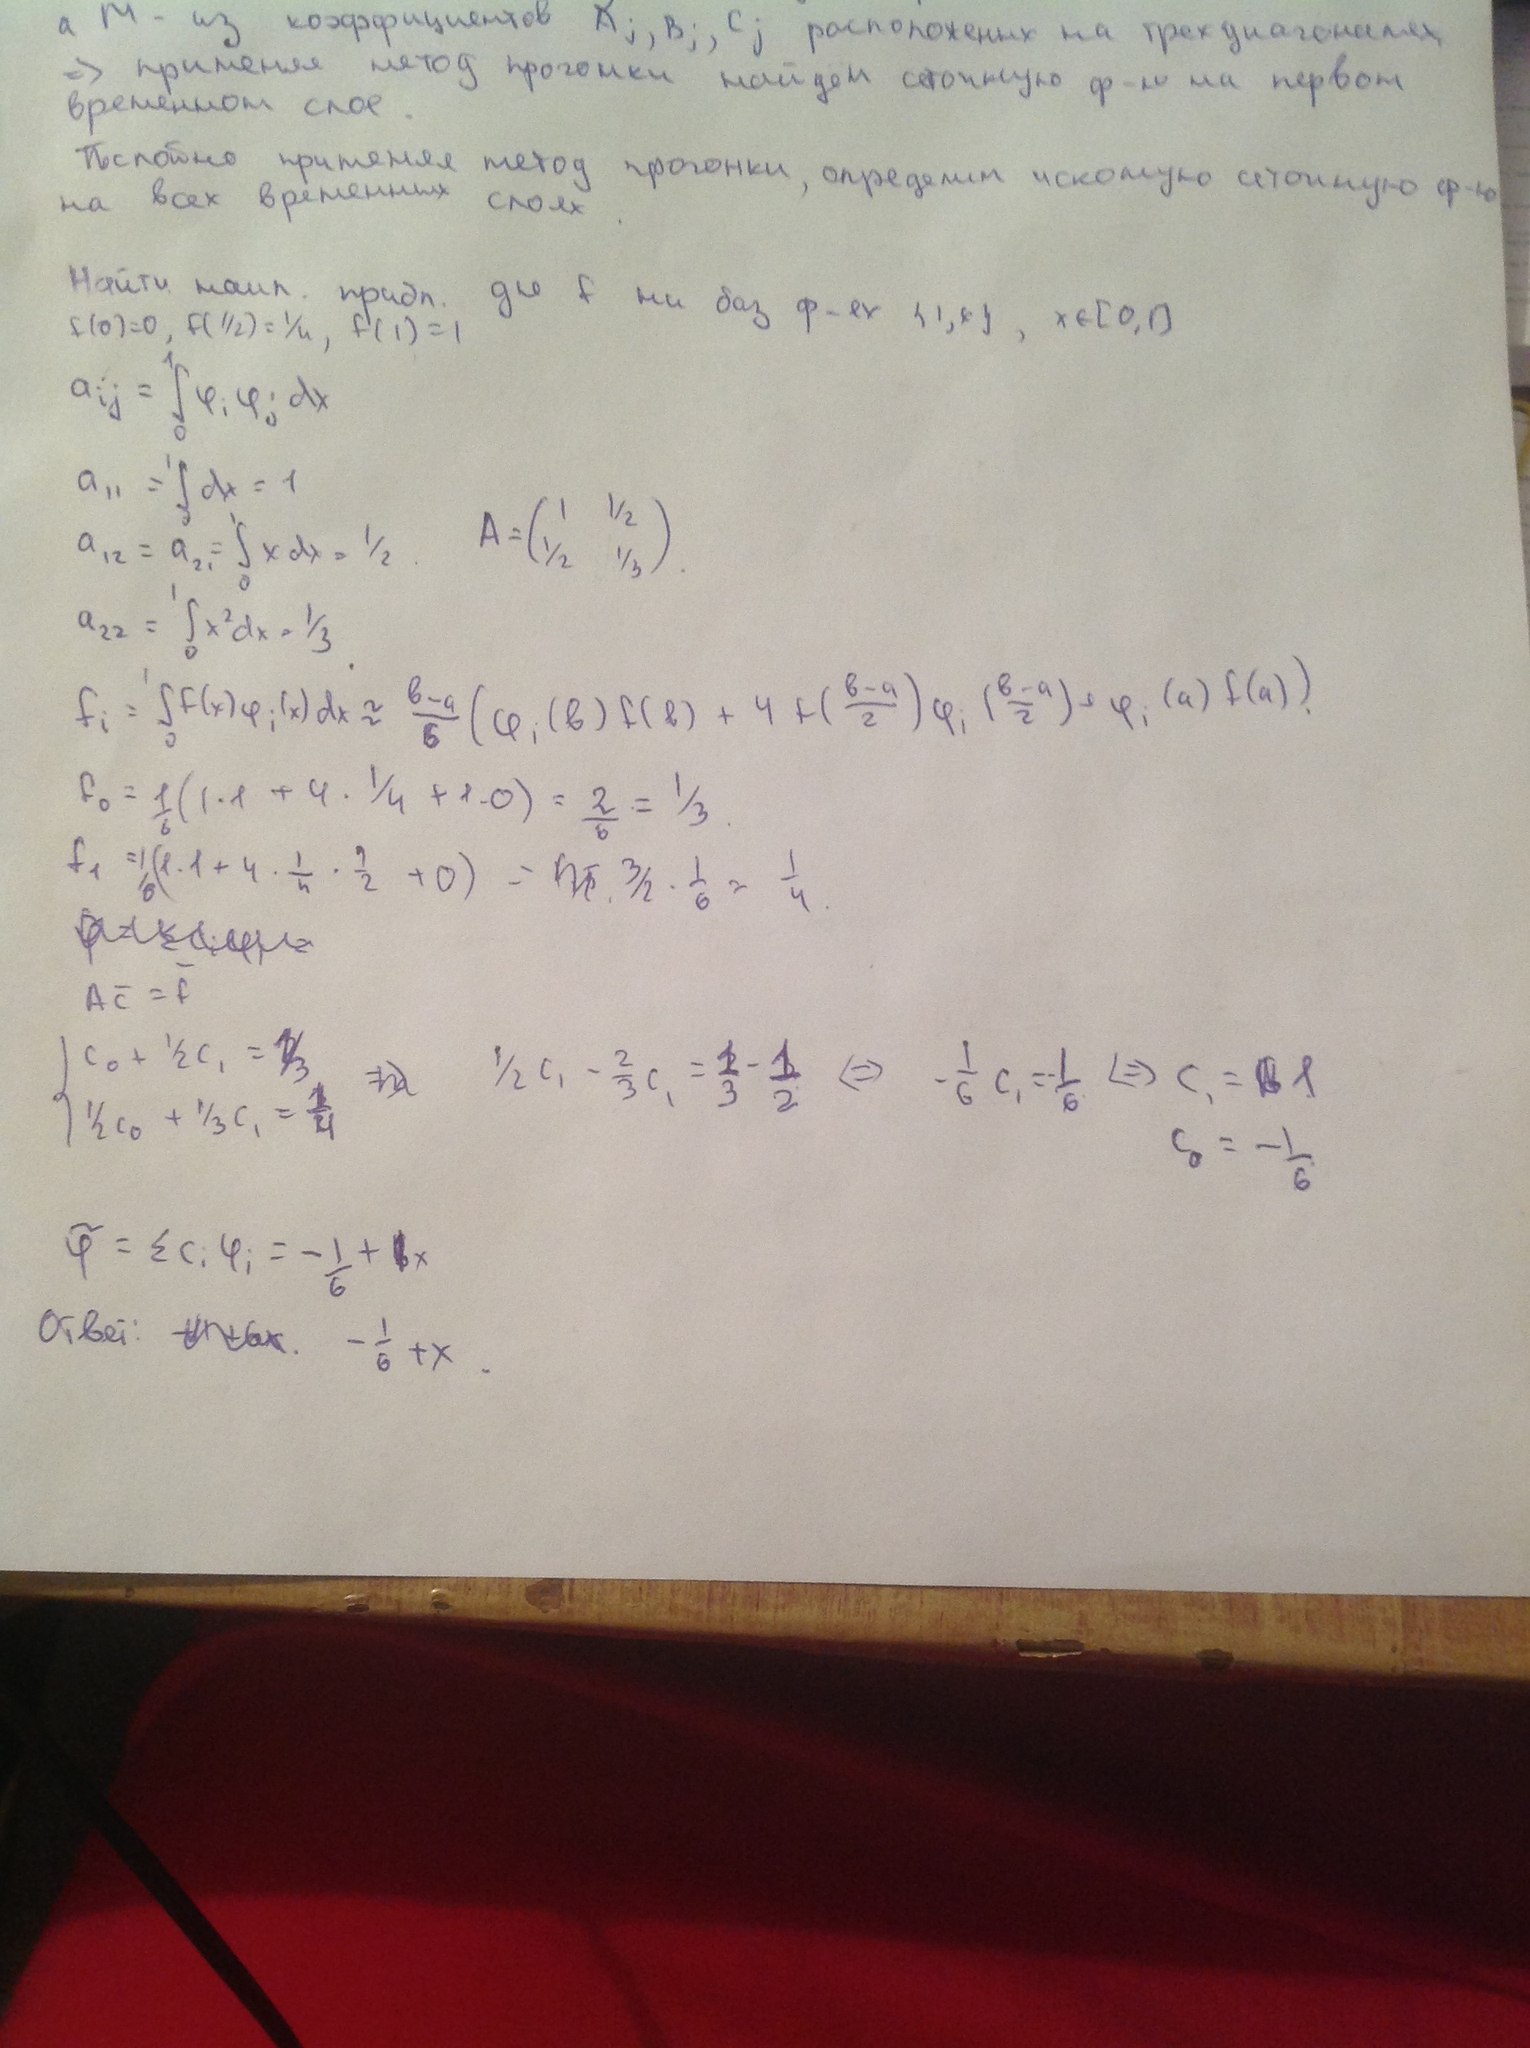 а M - из коэффициентов Aj, Bj, Cj расположеных на трех диагоналях
=> применяя метод прогонки найдем сеточную ф-ю на первом
временном слое.
Послойно применяя метод прогонки, определим искомую сеточную ф-ю
на всех временных слоях.
Найти наил. прибл. для f на баз ф-ях {1, x}, x∈[0,1]
f(0)=0, f(1/2)=1/4, f(1)=1
aij = ∫₀¹ φi φj dx
a11 = ∫₀¹ dx = 1
a12 = a21 = ∫₀¹ x dx = 1/2. A = (1 1/2; 1/2 1/3).
a22 = ∫₀¹ x² dx = 1/3.
fi = ∫₀¹ f(x) φi(x) dx ≈ (в-a)/6 (φi(в) f(в) + 4 f((в-a)/2) φi((в-a)/2) + φi(a) f(a)).
f0 = 1/6 (1·1 + 4·1/4 + 1·0) = 2/6 = 1/3.
f1 = 1/6 (1·1 + 4·1/4·1/2 + 0) = 3/2 · 1/6 = 1/4.
A c̄ = f̄
{ c0 + 1/2 c1 = 1/3 => 1/2 c1 - 2/3 c1 = 1/3 - 1/2 <=> -1/6 c1 = -1/6 <=> c1 = 1
1/2 c0 + 1/3 c1 = 1/4
c0 = -1/6
φ̃ = Σ ci φi = -1/6 + 1x
Ответ: -1/6 + x.